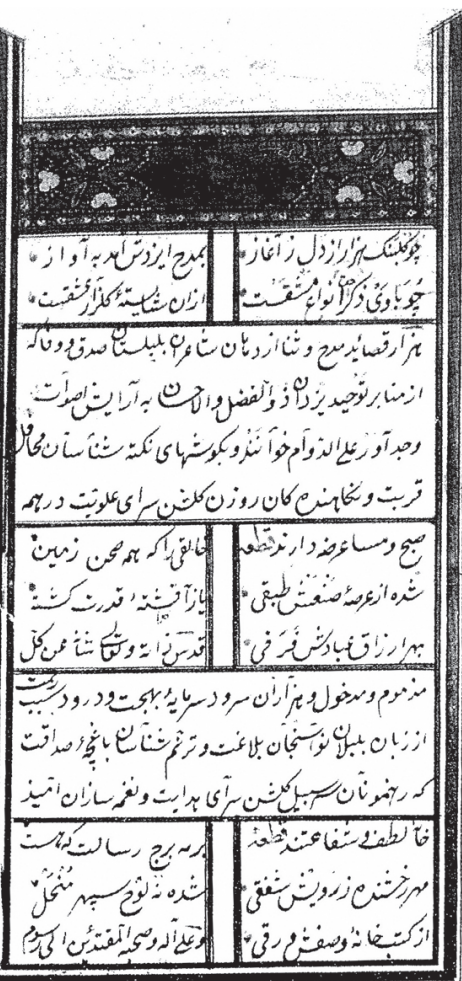 چو کلبنک هزار از دل ز آغاز بمدح ایزدش آمد به آواز
چو بادی ذکر انواع مشقت ازان شایستۀ کلزار شفقت
هزار قصاید مدح و ثنا از دهان شاعران بلبلستان صدق و وفا که
از منابر توحید یزدان ذو الفضل والاحسان به آرایش اصوات
وجد آور علی الدوام خوانند و بکوشهای نکته شناسان محافل
قربت و نکاهنده کان روزن کلشن سرای علویت در همه
صبح و مسا عرضه دارند قطعه خالقی را که همه صحن زمین
شده از عرصۀ صنعش طبقی باز آفشته قدرت کشته
بهر ارزاق عبادش فرقی قدس ذاته و تعالی شأنه عمن کل
مذموم و مدخول و هزاران سرود سرمایۀ بهجت و درود سبب رحمت
از زبان بلبلان نواسنجان بلاغت و ترنم شناسان باغچۀ صداقت
که رهنمونان سبیل کلشن سرای هدایت و نغمه سازان امید
لطف و شفاعتند قطعه بر مه برج رسالت که هست
مهر رخشنده ز رویش شفقی شده نه لوح سپهر
از کتب خانۀ وصفش ورقی و علی آله و صحبه المقتدین الی